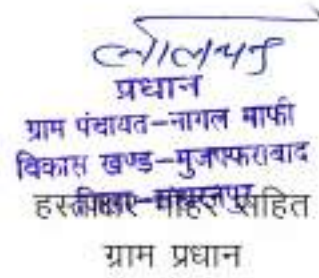 प्रधान
ग्राम पंचायत–नागल माफी
विकास खण्ड–मुजफ्फराबाद
हस्ताक्षर मोहर सहित
ग्राम प्रधान